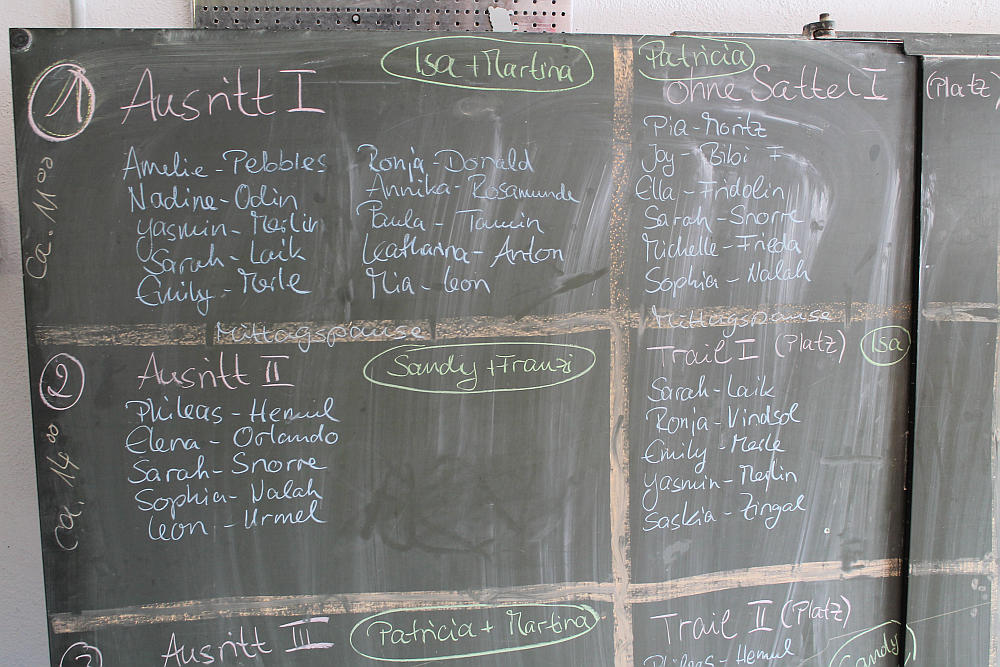 1
Ausritt I
Isa + Martina
ca. 11 00
Amelie - Pebbles
Nadine - Odin
Yasmin - Merlin
Sarah - Laik
Emily - Merle
Ronja - Donald
Annika - Rosamunde
Paula - Tamin
Katharina - Anton
Mia - Leon
Patricia
ohne Sattel I
Pia - Moritz
Joy - Bibi I
Ella - Fridolin
Sarah - Snorre
Michelle - Frieda
Sophia - Nalah
(Platz)
Mittagspause
Mittagspause
2
Ausritt II
Sandy + Franzi
ca. 14 00
Phileas - Hemul
Elena - Orlando
Sarah - Snorre
Sophia - Nalah
Leon - Urmel
Trail I (Platz)
Isa
Sarah - Laik
Ronja - Vindsol
Emily - Merle
Yasmin - Merlin
Saskia - Zingal
3
Ausritt III
Patricia + Martina
Trail II (Platz)
Phileas - Hemul
Sandy